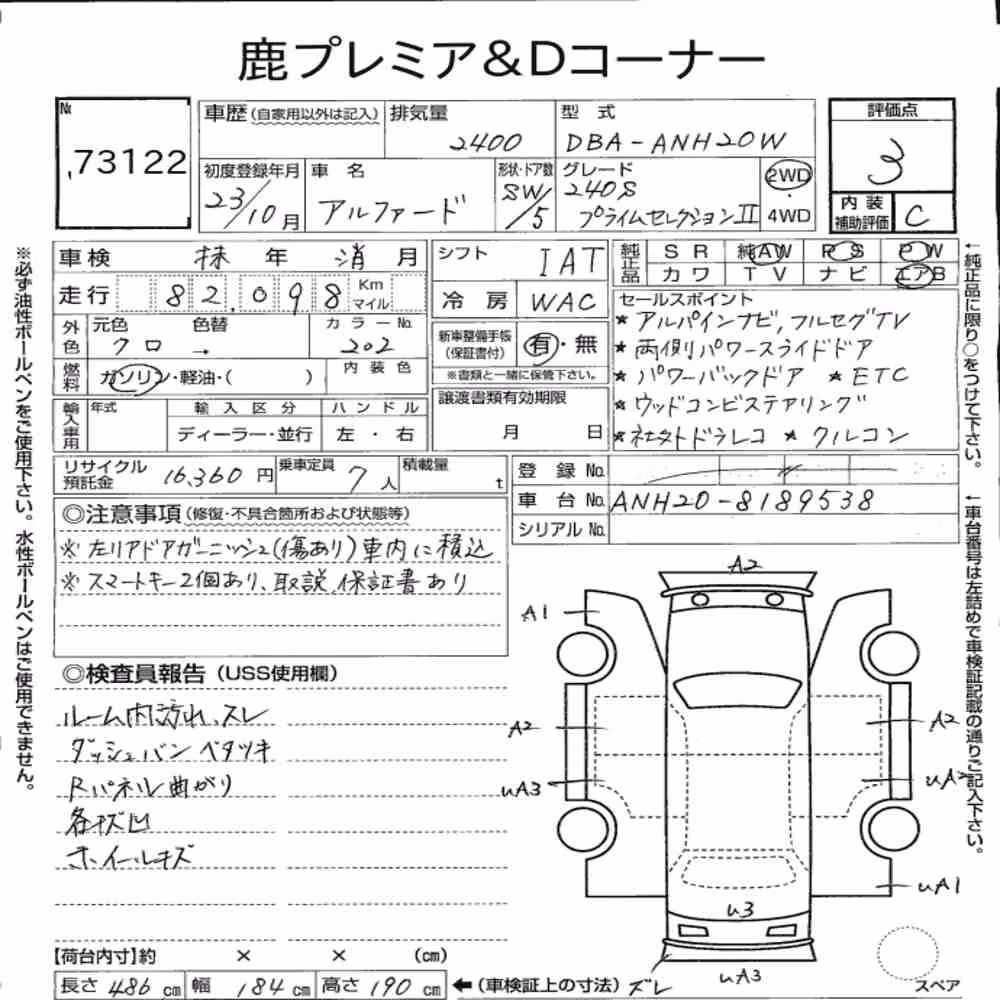 鹿プレミア&Dコーナー
№ 73122
車歴(自家用以外は記入) 排気量 2400 型 式 DBA-ANH20W 評価点 3
初度登録年月 23/10月 車 名 アルファード 形状・ドア数 SW/5 グレード 240S プライムセレクションⅡ 2WD・4WD 内装補助評価 C
車検 抹 年 消 月 シフト IAT 純正品 SR 純AW PS PW
カワ TV ナビ エアB
走行 82,098 Km マイル 冷 房 WAC
外色 元色 クロ 色替 → カラーNo. 202 新車整備手帳(保証書付) 有・無
※書類と一緒に保管下さい。
燃料 ガソリン・軽油・( ) 内 装 色
輸入車用 年式 輸 入 区 分 ハ ン ド ル
ディーラー・並行 左 ・ 右
譲渡書類有効期限
月 日
セールスポイント
★ アルパインナビ,フルセグTV
★ 両側パワースライドドア
★ パワーバックドア ★ ETC
★ ウッドコンビステアリング
★ 社外ドラレコ ★ クルコン
リサイクル預託金 16,360 円 乗車定員 7人 積載量 t
登 録 No.
車 台 No. ANH20-8189538
シリアル No.
◎注意事項(修復・不具合箇所および状態等)
※ 左リアドアガーニッシュ(傷あり)車内に積込
※ スマートキー2個あり、取説、保証書あり
◎検査員報告(USS使用欄)
ルーム内汚れ、スレ
ダッシュバン ベタツキ
Rパネル曲がり
各キズ凹
ホイールキズ
A2
A1
A2
A2
uA3
uA2
uA1
u3
uA3
ズレ
スペア
【荷台内寸】約 × × (cm)
長さ 486 cm 幅 184 cm 高さ 190 cm ←(車検証上の寸法)
※必ず油性ボールペンをご使用下さい。水性ボールペンはご使用できません。
←純正品に限り○をつけて下さい。
←車台番号は左詰めで車検証記載の通りご記入下さい。